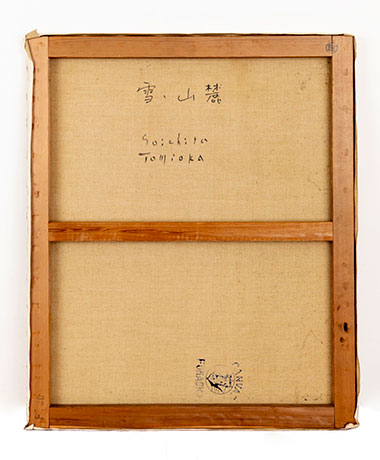 雪、山麓
Soichiro
Tomioka
CANVAS